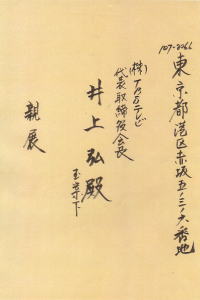 107-8066
東京都港区赤坂五ノ三ノ六番地
(株)TBSテレビ
代表取締役会長
井上弘殿
玉案下
親展